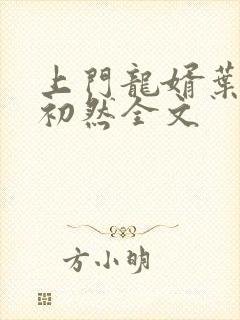 上門龍婿葉
初然全文
方小明